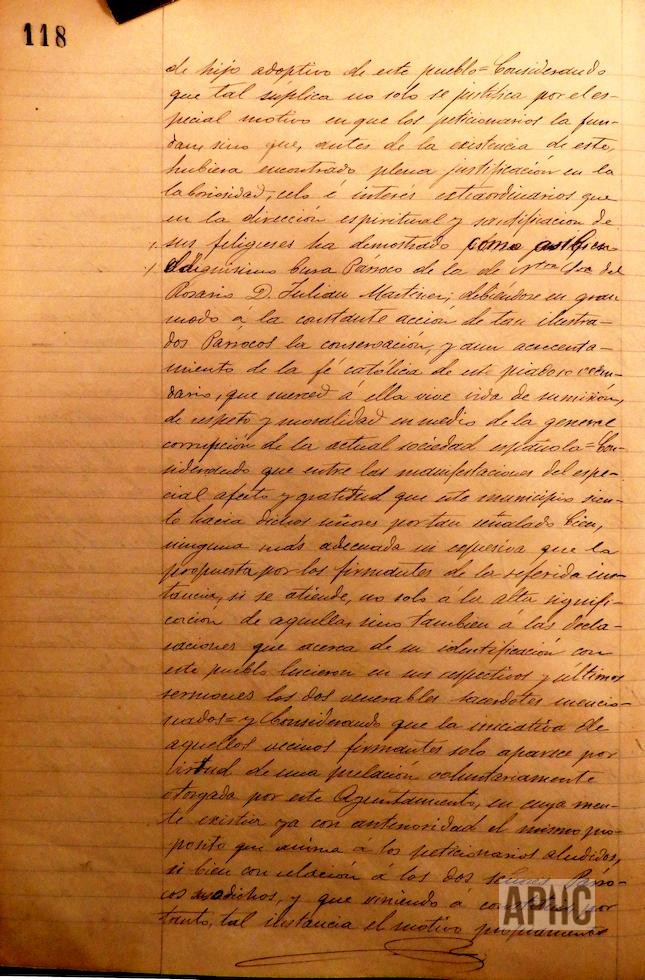 118
de hijo adoptivo de este pueblo = Considerando
que tal súplica no solo se justifica por el es-
pecial motivo en que los peticionarios la fun-
dan, sino que, antes de la existencia de este,
hubiera encontrado plena justificación en la
laboriosidad, celo é interés extraordinarios que
en la dirección espiritual y santificación de
sus feligreses ha demostrado como
dignisimo Cura Párroco de la de Ntra Sra del
Rosario D. Julian Martinez; debiéndose en gran
modo a la constante acción de tan ilustra-
dos Párrocos la conservación, y aun acrecenta-
miento de la fé católica de este piadoso vecin-
dario, que merced á ella vive vida de sumisión,
de respeto y moralidad en medio de la general
corrupción de la actual sociedad española = Con-
siderando que entre las manifestaciones del espe-
cial afecto y gratitud que este municipio sien-
te hacia dichos señores por tan señalado bien,
ninguna más adecuada ni expresiva que la
propuesta por los firmantes de la referida ins-
tancia, si se atiende, no solo á la alta signifi-
cación de aquella, sino tambien á las decla-
raciones que acerca de su identificación con
este pueblo hicieron en sus respectivos y últimos
sermones los dos venerables sacerdotes mencio-
nados = y Considerando que la iniciativa de
aquellos vecinos firmantes solo aparece por
virtud de una prelación voluntariamente
otorgada por este Ayuntamiento, en cuya men-
te existia ya con anterioridad el mismo pro-
posito que anima á los peticionarios aludidos,
si bien con relación á los dos señores Párro-
cos susodichos, y que viniendo á constituir por
tanto, tal instancia el motivo propiamente
APHC